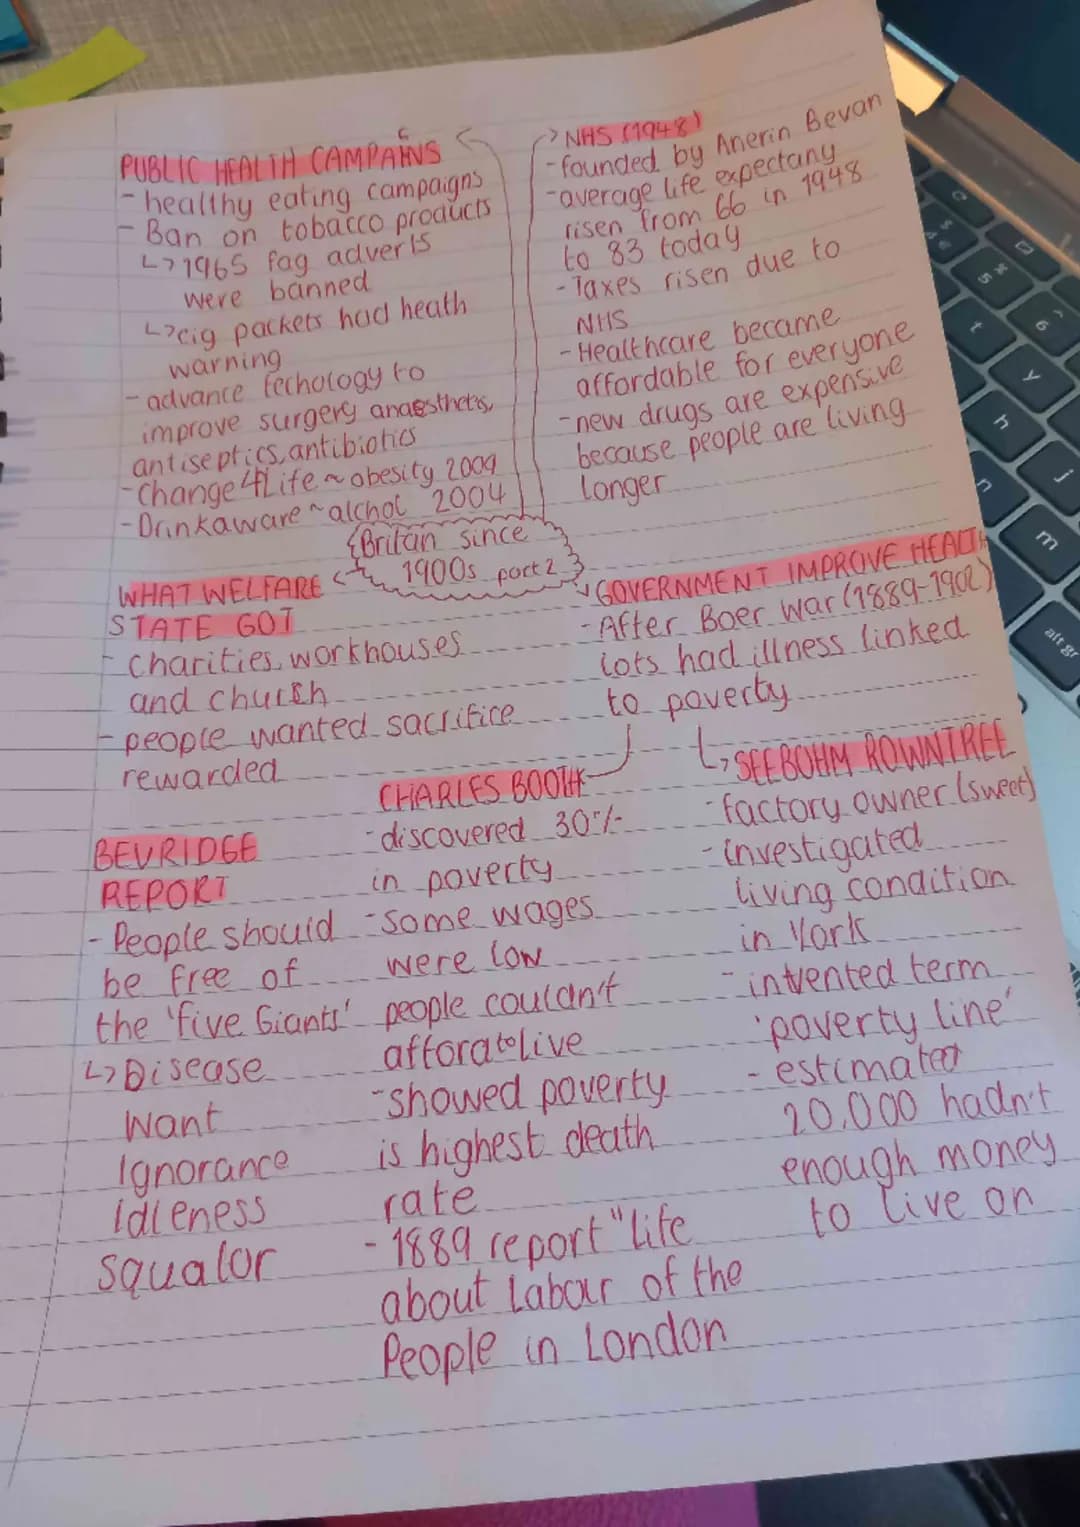 PUBLIC HEALTH CAMPAIGNS
- healthy eating campaigns
- Ban on tobacco products
↳ 1965 fag adverts
were banned
↳ cig packets had heath
warning
- advance techology to
improve surgery anaesthetics,
antiseptics, antibiotics
- Change4Life ~ obesity 2009
- Drinkaware ~ alchol 2004
NHS (1948)
- founded by Anerin Bevan
- average life expectany
risen from 66 in 1948
to 83 today
- Taxes risen due to
NHS
- Healthcare became
affordable for everyone
- new drugs are expensive
because people are living
longer
Britan since
1900s part 2
WHAT WELFARE
STATE GOT
- Charities, workhouses
and church
- people wanted sacrifice
rewarded
GOVERNMENT IMPROVE HEALTH
- After Boer war (1889-1902)
lots had illness linked
to poverty
BEVRIDGE
REPORT
- People should
be free of
the 'five Giants'
↳ Disease
Want
Ignorance
Idleness
Squalor
CHARLES BOOTH
- discovered 30%
in poverty
- Some wages
were low
people couldn't
afford to live
- showed poverty
is highest death
rate
- 1889 report "life
about Labour of the
People in London
SEEBOHM ROWNTREE
- factory owner (sweet)
- investigated
living condition
in York
- invented term
'poverty line'
- estimated
20,000 hadn't
enough money
to live on
5
6
t
y
h
j
n
m
alt gr